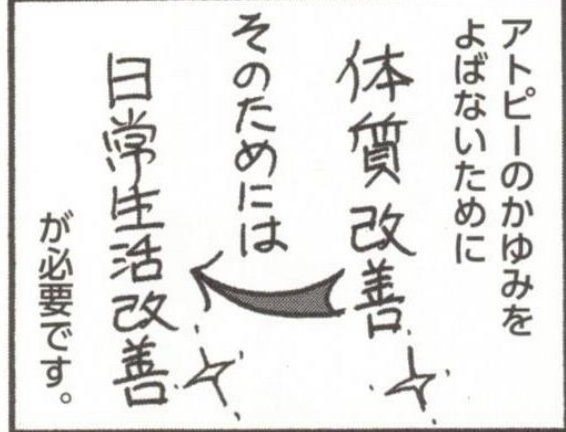 アトピーのかゆみを
よばないために
体質改善
そのためには
日常生活改善
が必要です。